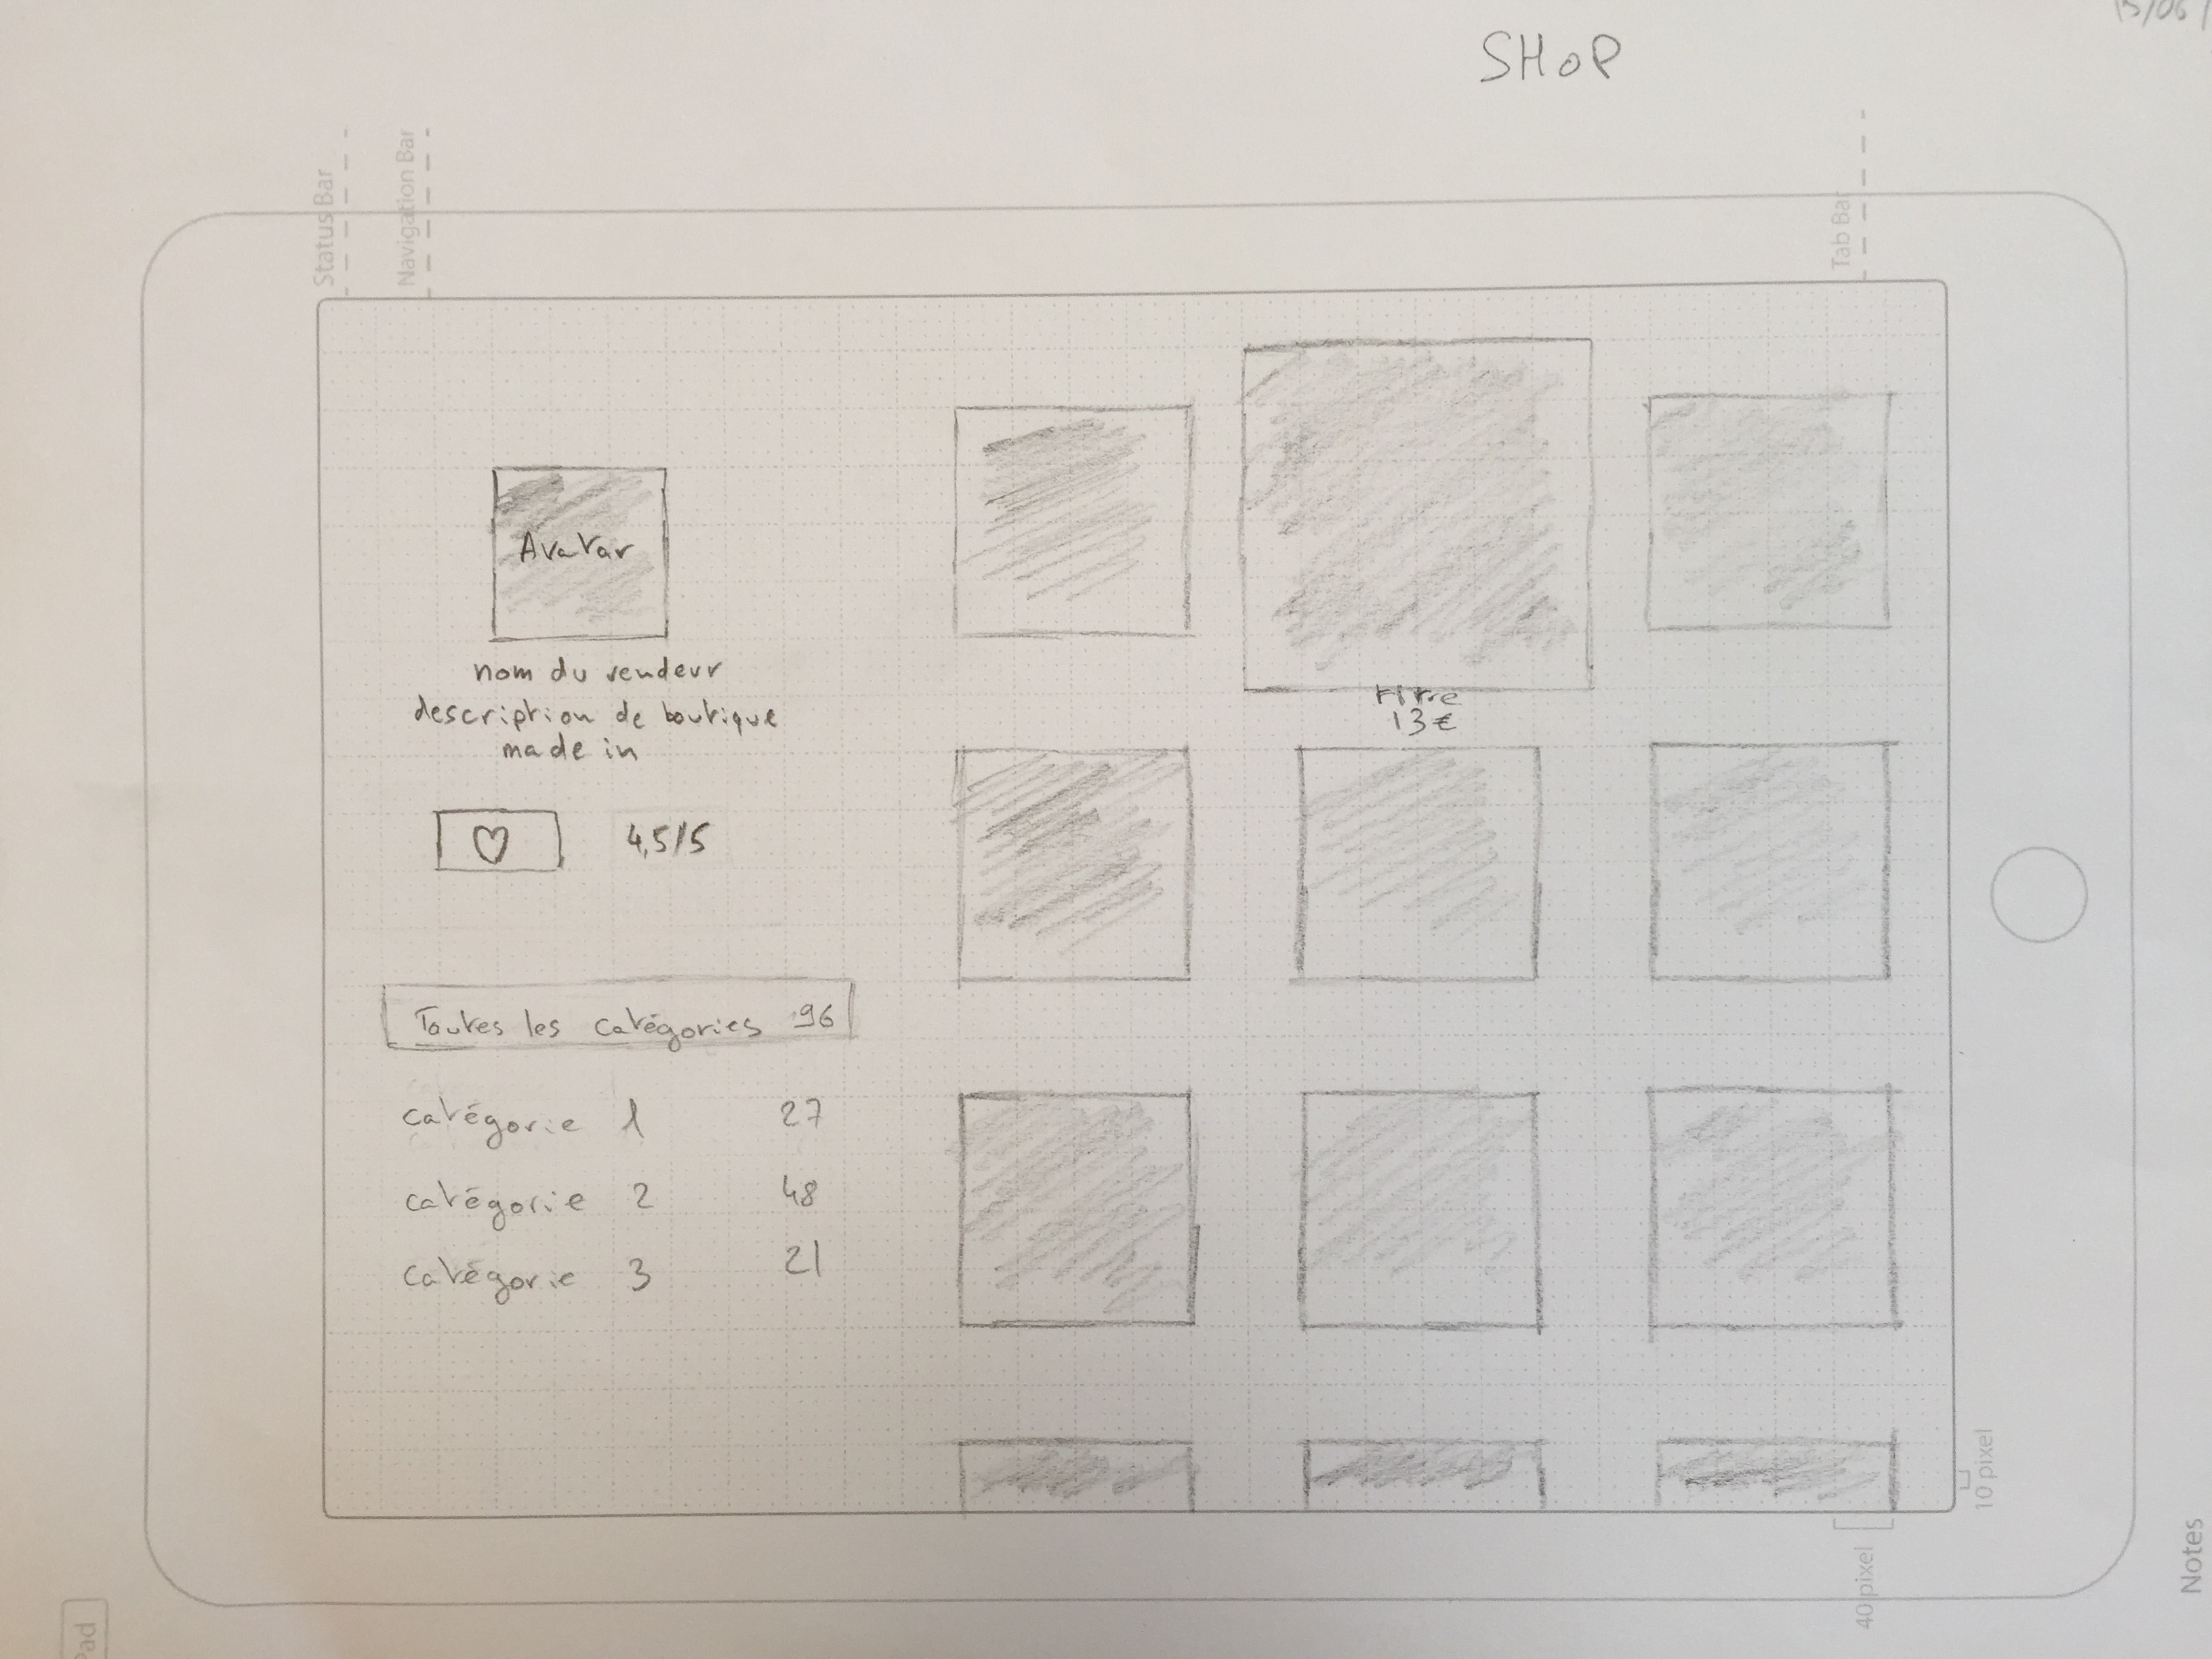 SHOP
Status Bar
Navigation Bar
Tab Bar
Avatar
nom du vendeur
description de boutique
made in
4,5/5
titre
13€
Toutes les catégories 96
catégorie 1 27
catégorie 2 48
catégorie 3 21
10 pixel
40 pixel
Notes
Pad